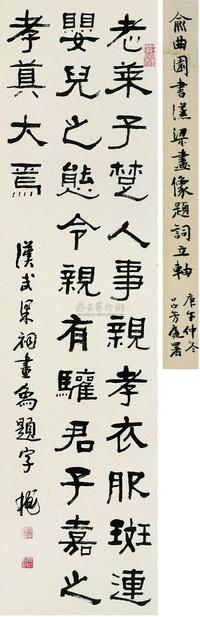 老莱子楚人事親孝衣服斑連
嬰兒之態令親有驩君子嘉之
孝莫大焉
漢武梁祠畫象題字 樾
俞曲園書漢梁畫像題詞立軸
庚午仲冬